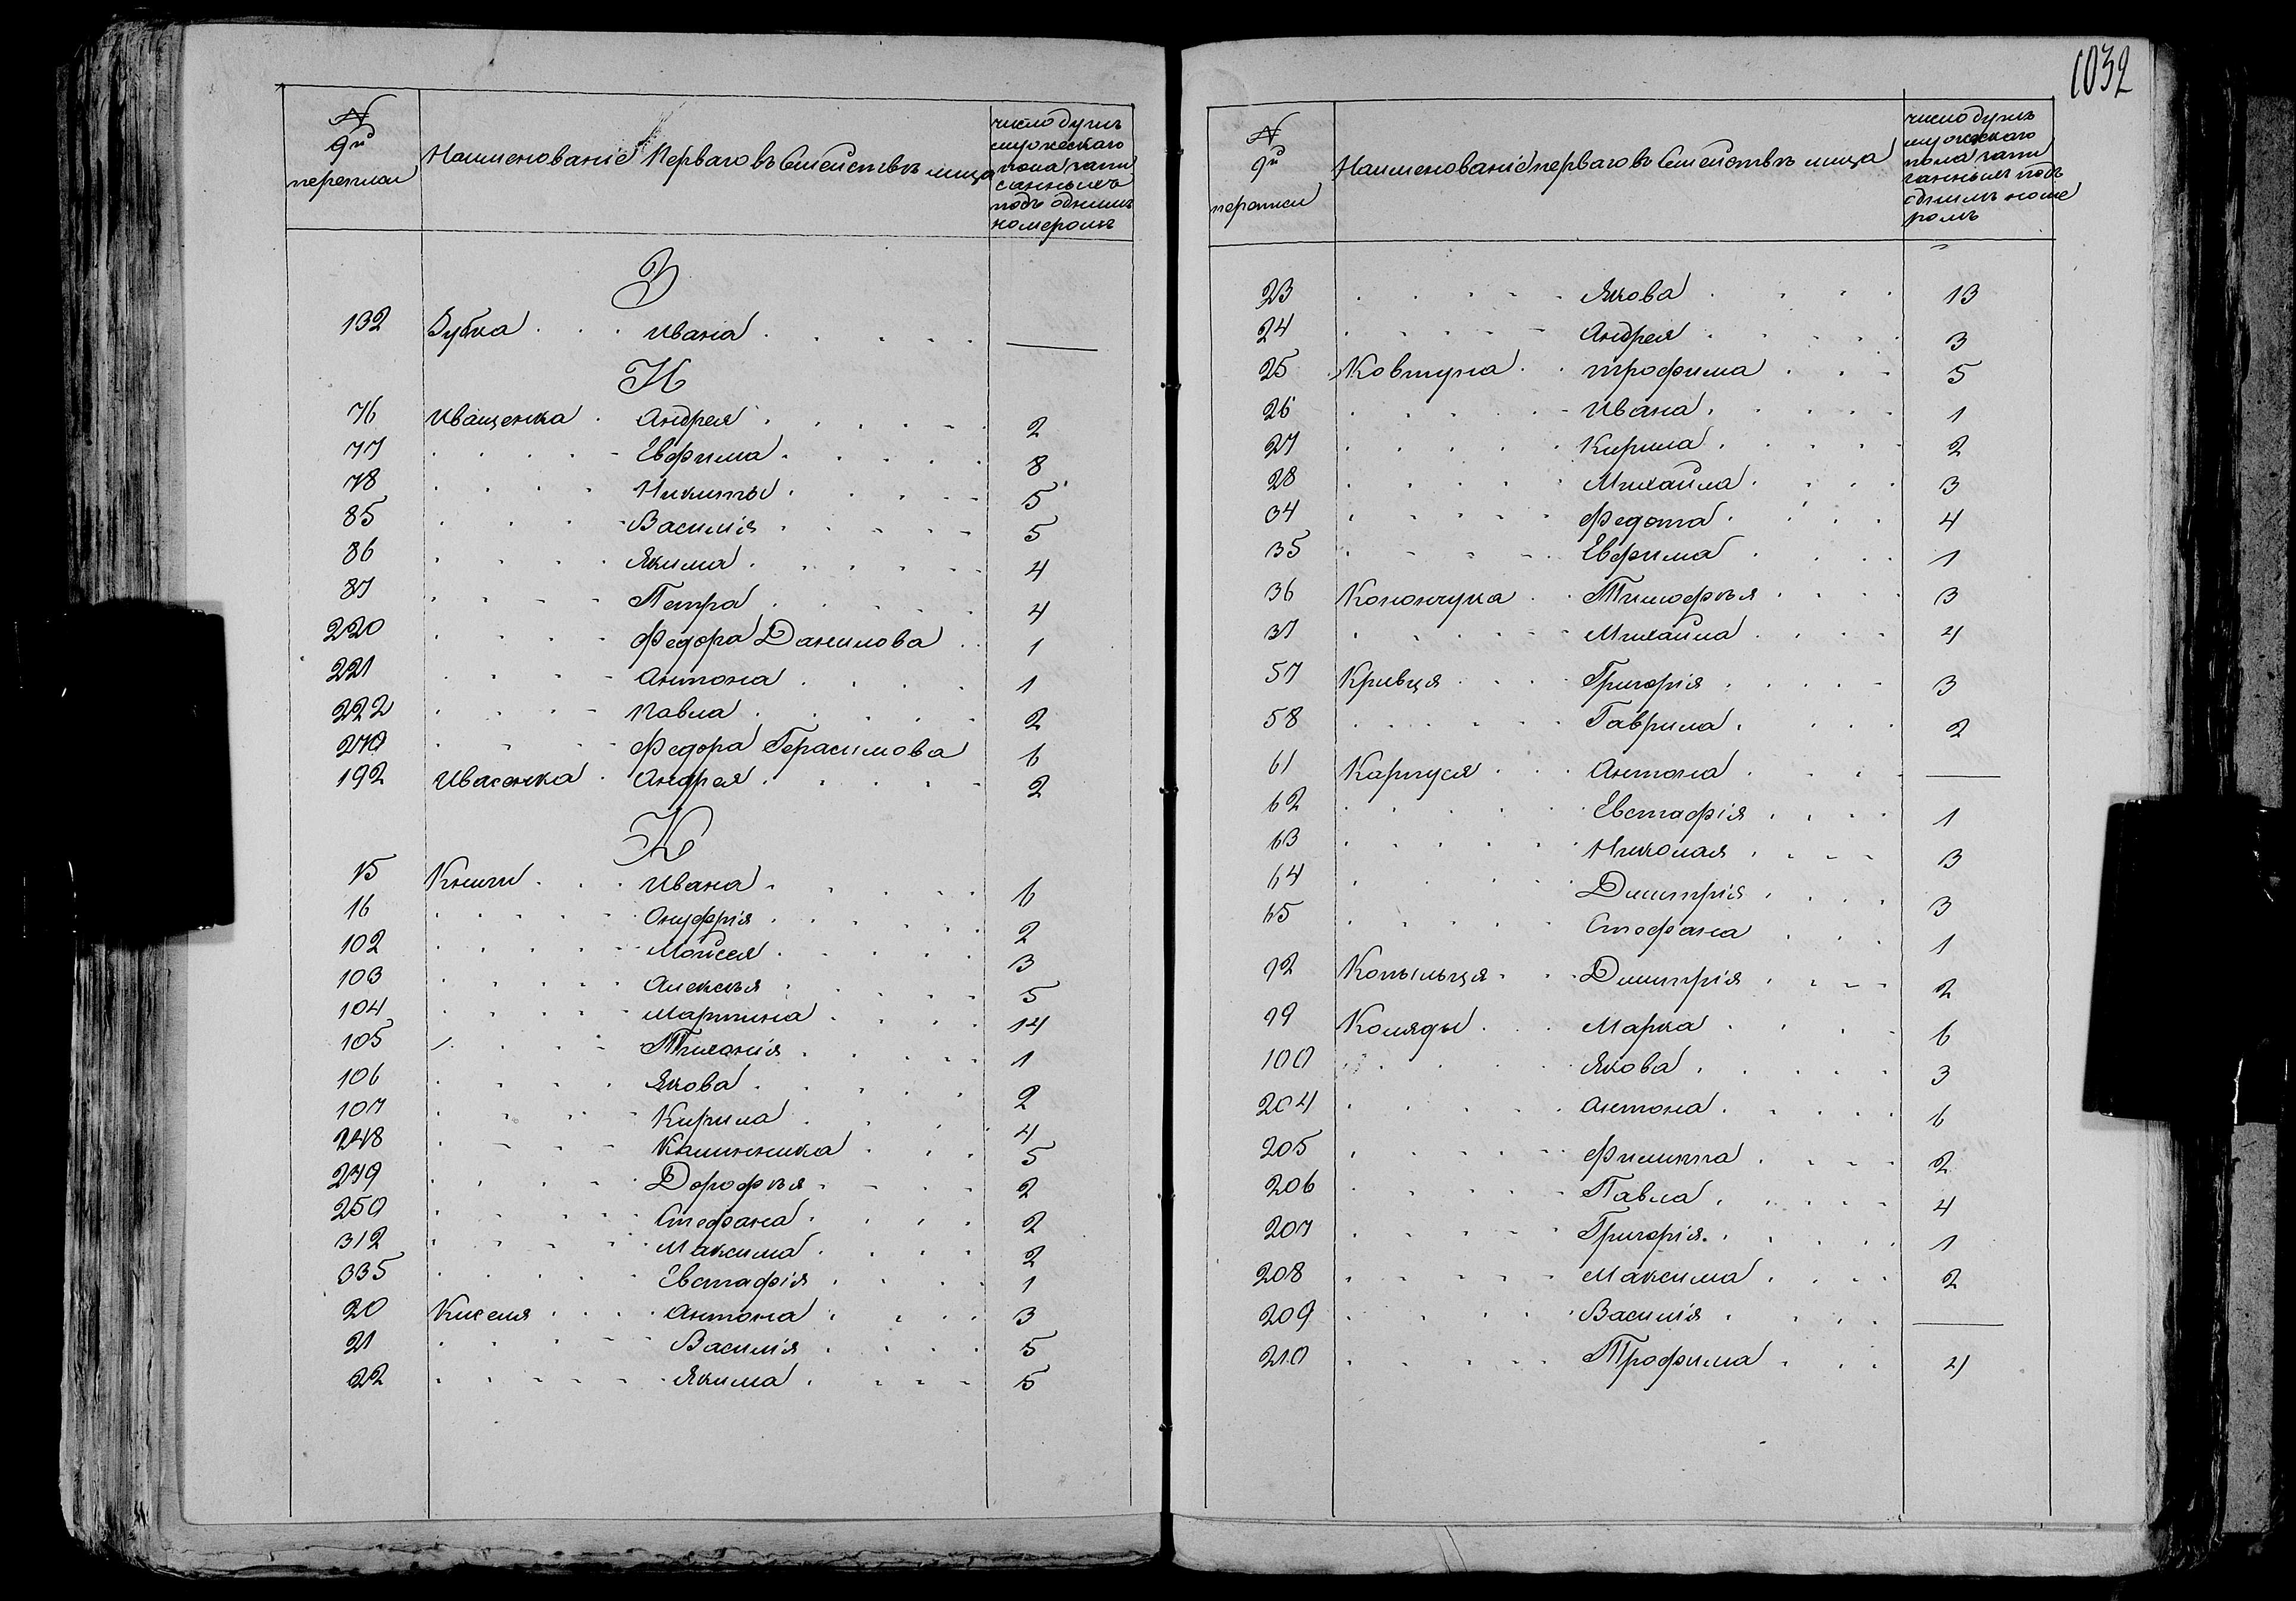 1032
№ 9й переписи | Наименованіе перваго въ Семействѣ лица | число душъ мужескаго пола запи санныхъ подъ однимъ номеромъ
З
132 Зубка Ивана —
И
76 Иващенка Андрея 2
77 Евфима 8
78 Никиты 5
85 Василія 5
86 Якима 4
87 Петра 4
220 Федора Данилова 1
221 Антона 1
222 Павла 2
270 Федора Герасимова 6
192 Ивасенка Андрея 2
К
15 Книги Ивана 6
16 Онуфрія 2
102 Мойсея 3
103 Алексѣя 5
104 Мартина 14
105 Тихонія 1
106 Якова 2
107 Кирила 4
248 Калинника 5
249 Дорофѣя 2
250 Стефана 2
312 Максима 2
335 Евстафія 1
20 Киселя Антона 3
21 Василія 5
22 Якима 5
№ 9й переписи | Наименованіе перваго въ Семействѣ лица | число душъ мужескаго пола запи санныхъ подъ однимъ номе ромъ
23 Якова 13
24 Андрея 3
25 Ковтуна трофима 5
26 Ивана 1
27 Кирила 2
28 Михайла 3
34 Федота 4
35 Евфима 1
36 Конончука Тимофѣя 3
37 Михайла 4
57 Кривця Григорія 3
58 Гаврила 2
61 Карпуся Антона —
62 Евстафія 1
63 Николая 3
64 Димитрія 3
65 Стефана 1
92 Копыльця Димитрія 2
99 Коляды Марка 6
100 Якова 3
204 Антона 6
205 Филиппа 2
206 Павла 4
207 Григорія 1
208 Максима 2
209 Василія —
210 Трофима 4